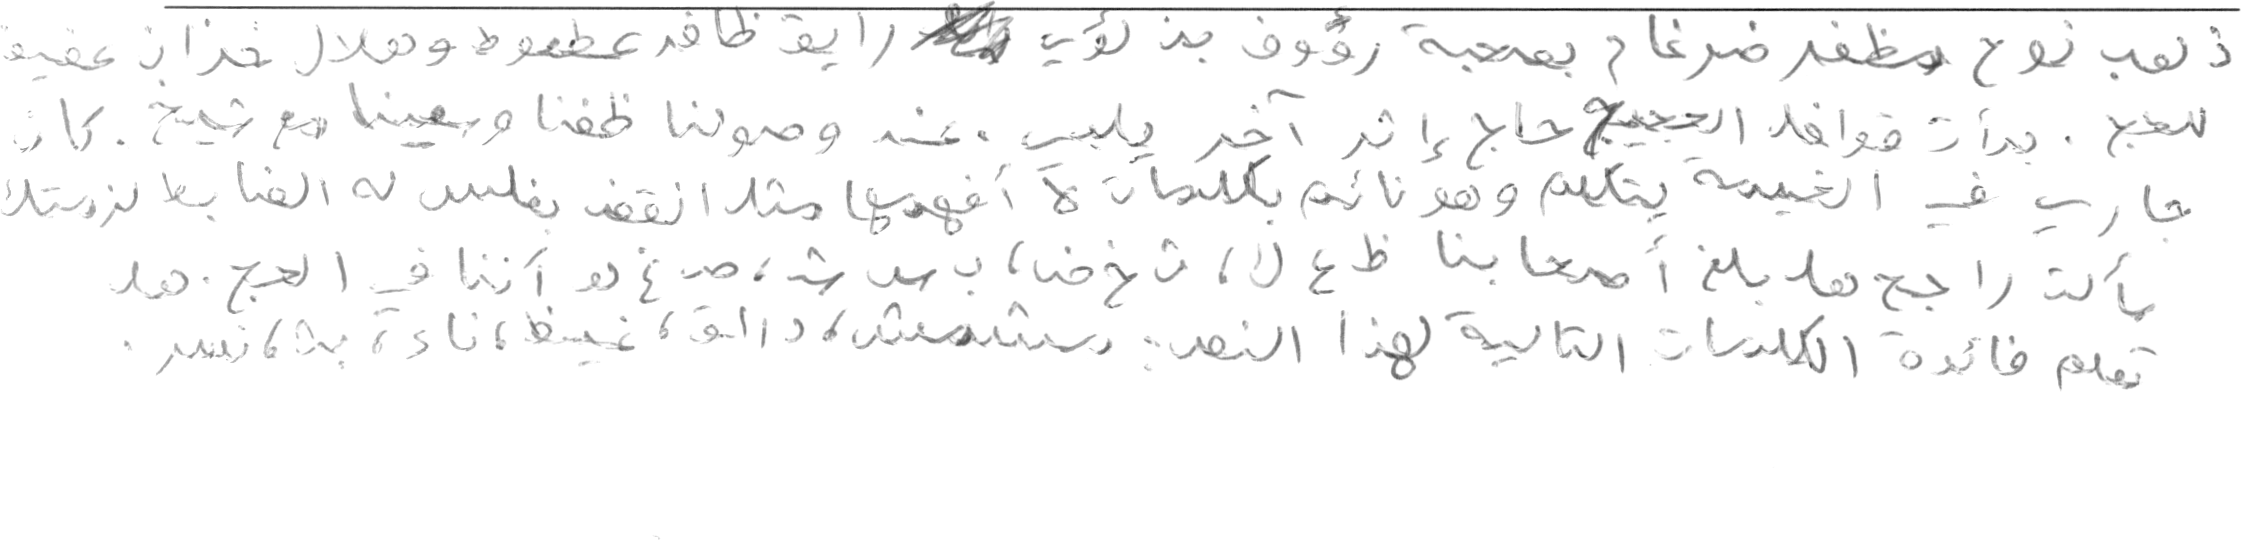 ذهب نوح مظفر ضرغام بصحبة رؤوف بن لؤي رايق ظافر عطعوط وهلال خزان عفيف
للحج . بدأت قوافل الحجيج حاج إثر آخر يلبي . عند وصولنا طفنا وسعينا مع شيخ . كان
جاري في الخيمة يتكلم وهو نائم بكلمات لا أفهمها مثل انقض بغلس له الضابط لزمتك
سألت راجح هل بلغ أصحابنا ظ ع لا، ش خ ض، ب س ث، ص غ هو أننا في الحج . هل
تعلم فائدة الكلمات التالية لهذا النص: مستشمش، دالق، غيظ، ناءة، بث، نسر .